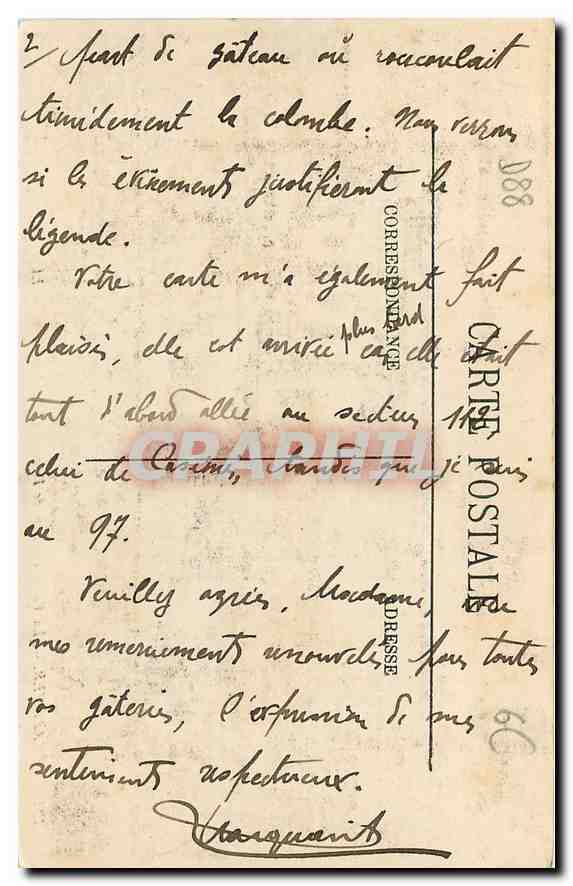 2/ part de gâteau où roucoulait
timidement la colombe. Nous verrons
si les évènements justifieront la
légende.
Votre carte m'a également fait
plus tard
plaisir, elle est arrivée car elle était
tout d'abord allée au secteur 112
celui de Casimir, tandis que je suis
au 97.
Veuillez agréer, Madame, avec
mes remerciements renouvelés pour toutes
vos gâteries, l'expression de mes
sentiments respectueux.
CORRESPONDANCE
ADRESSE
CARTE POSTALE
D88
6€
CRAPHIL